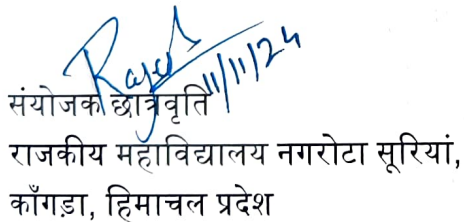 Rajesh
11/11/24
संयोजक छात्रवृति
राजकीय महाविद्यालय नगरोटा सूरियां,
काँगड़ा, हिमाचल प्रदेश